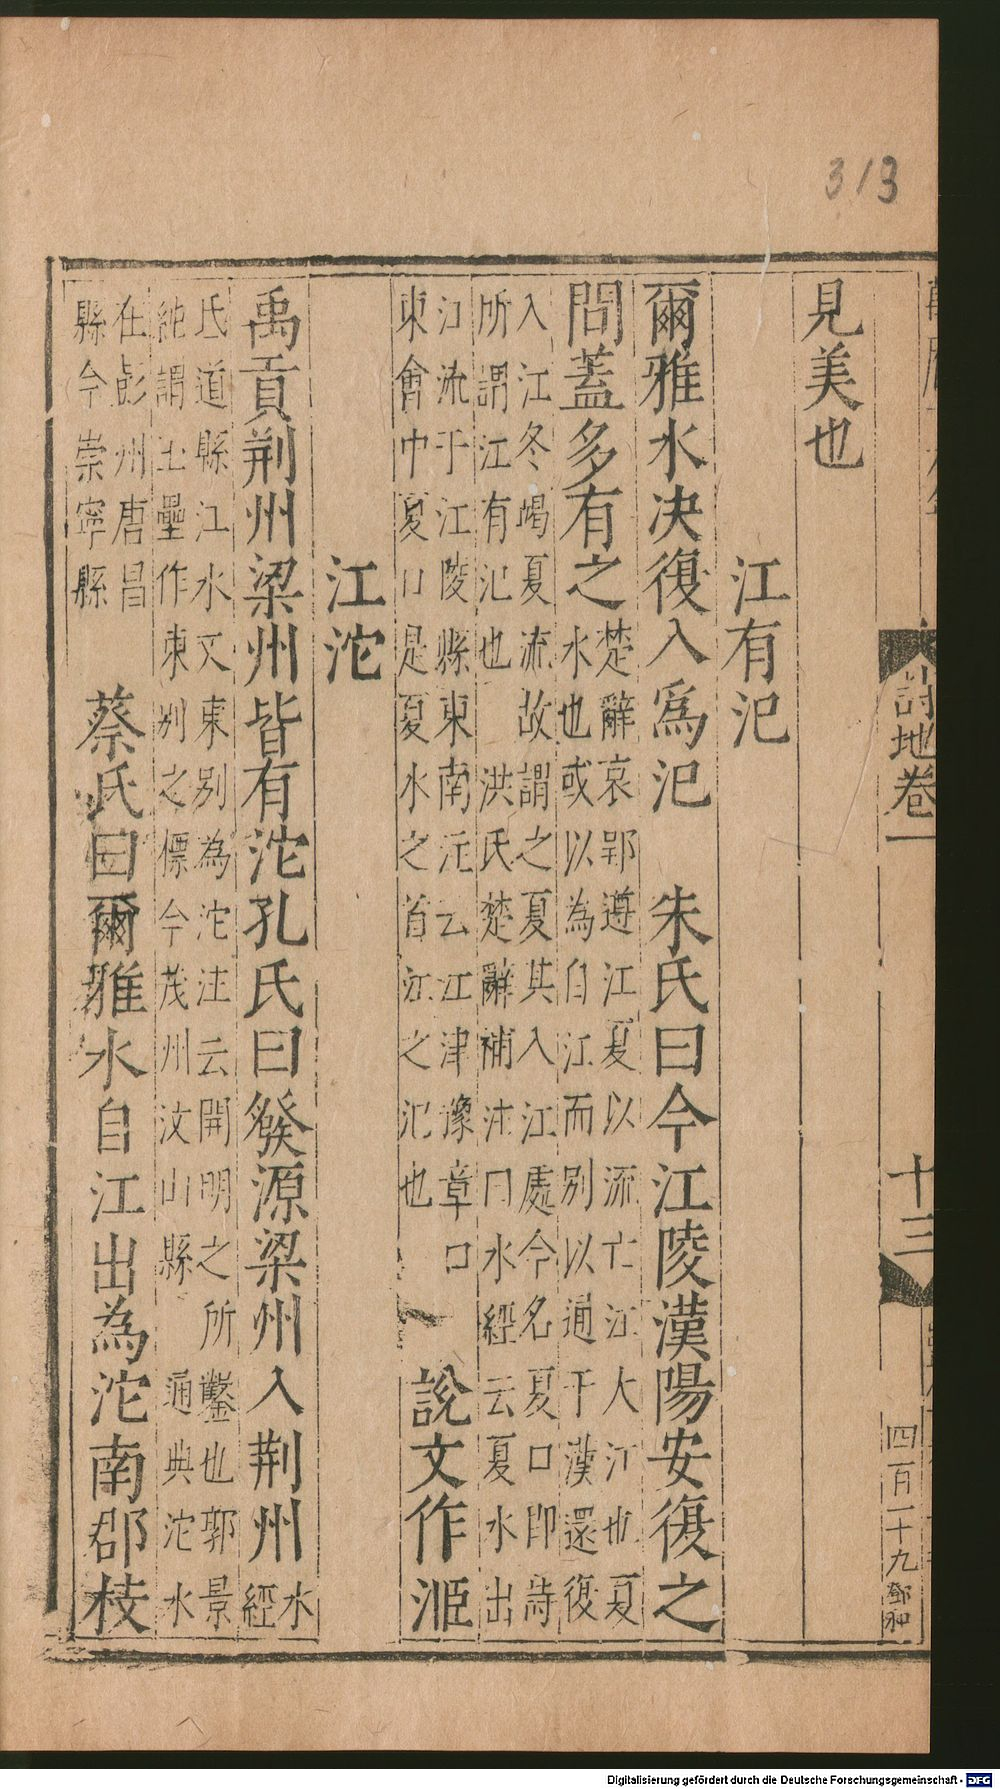 見美也
江有汜
爾雅水决復入爲汜　朱氏曰今江陵漢陽安復之
間蓋多有之
楚辭哀郢遵江夏以流亡江大江也夏
水也或以為自江而別以通于漢還復
入江冬竭夏流故謂之夏其入江處今名夏口即詩
所謂江有汜也　洪氏楚辭補注曰水經云夏水出
江流于江陵縣東南沅云江津豫章口
東會中夏口是夏水之首江之汜也
說文作洍
江沱
禹貢荆州梁州皆有沱孔氏曰發源梁州入荆州
水
經
氏道縣江水又東別為沱注云開明之所鑿也郭景
純謂玉壘作東別之標今茂州汶山縣　通典沱水
在彭州唐昌
縣今崇寧縣
蔡氏曰爾雅水自江出為沱南郡枝
詩地卷一
十三
四百一十九
鄧和
313
Digitalisierung gefördert durch die Deutsche Forschungsgemeinschaft - DFG